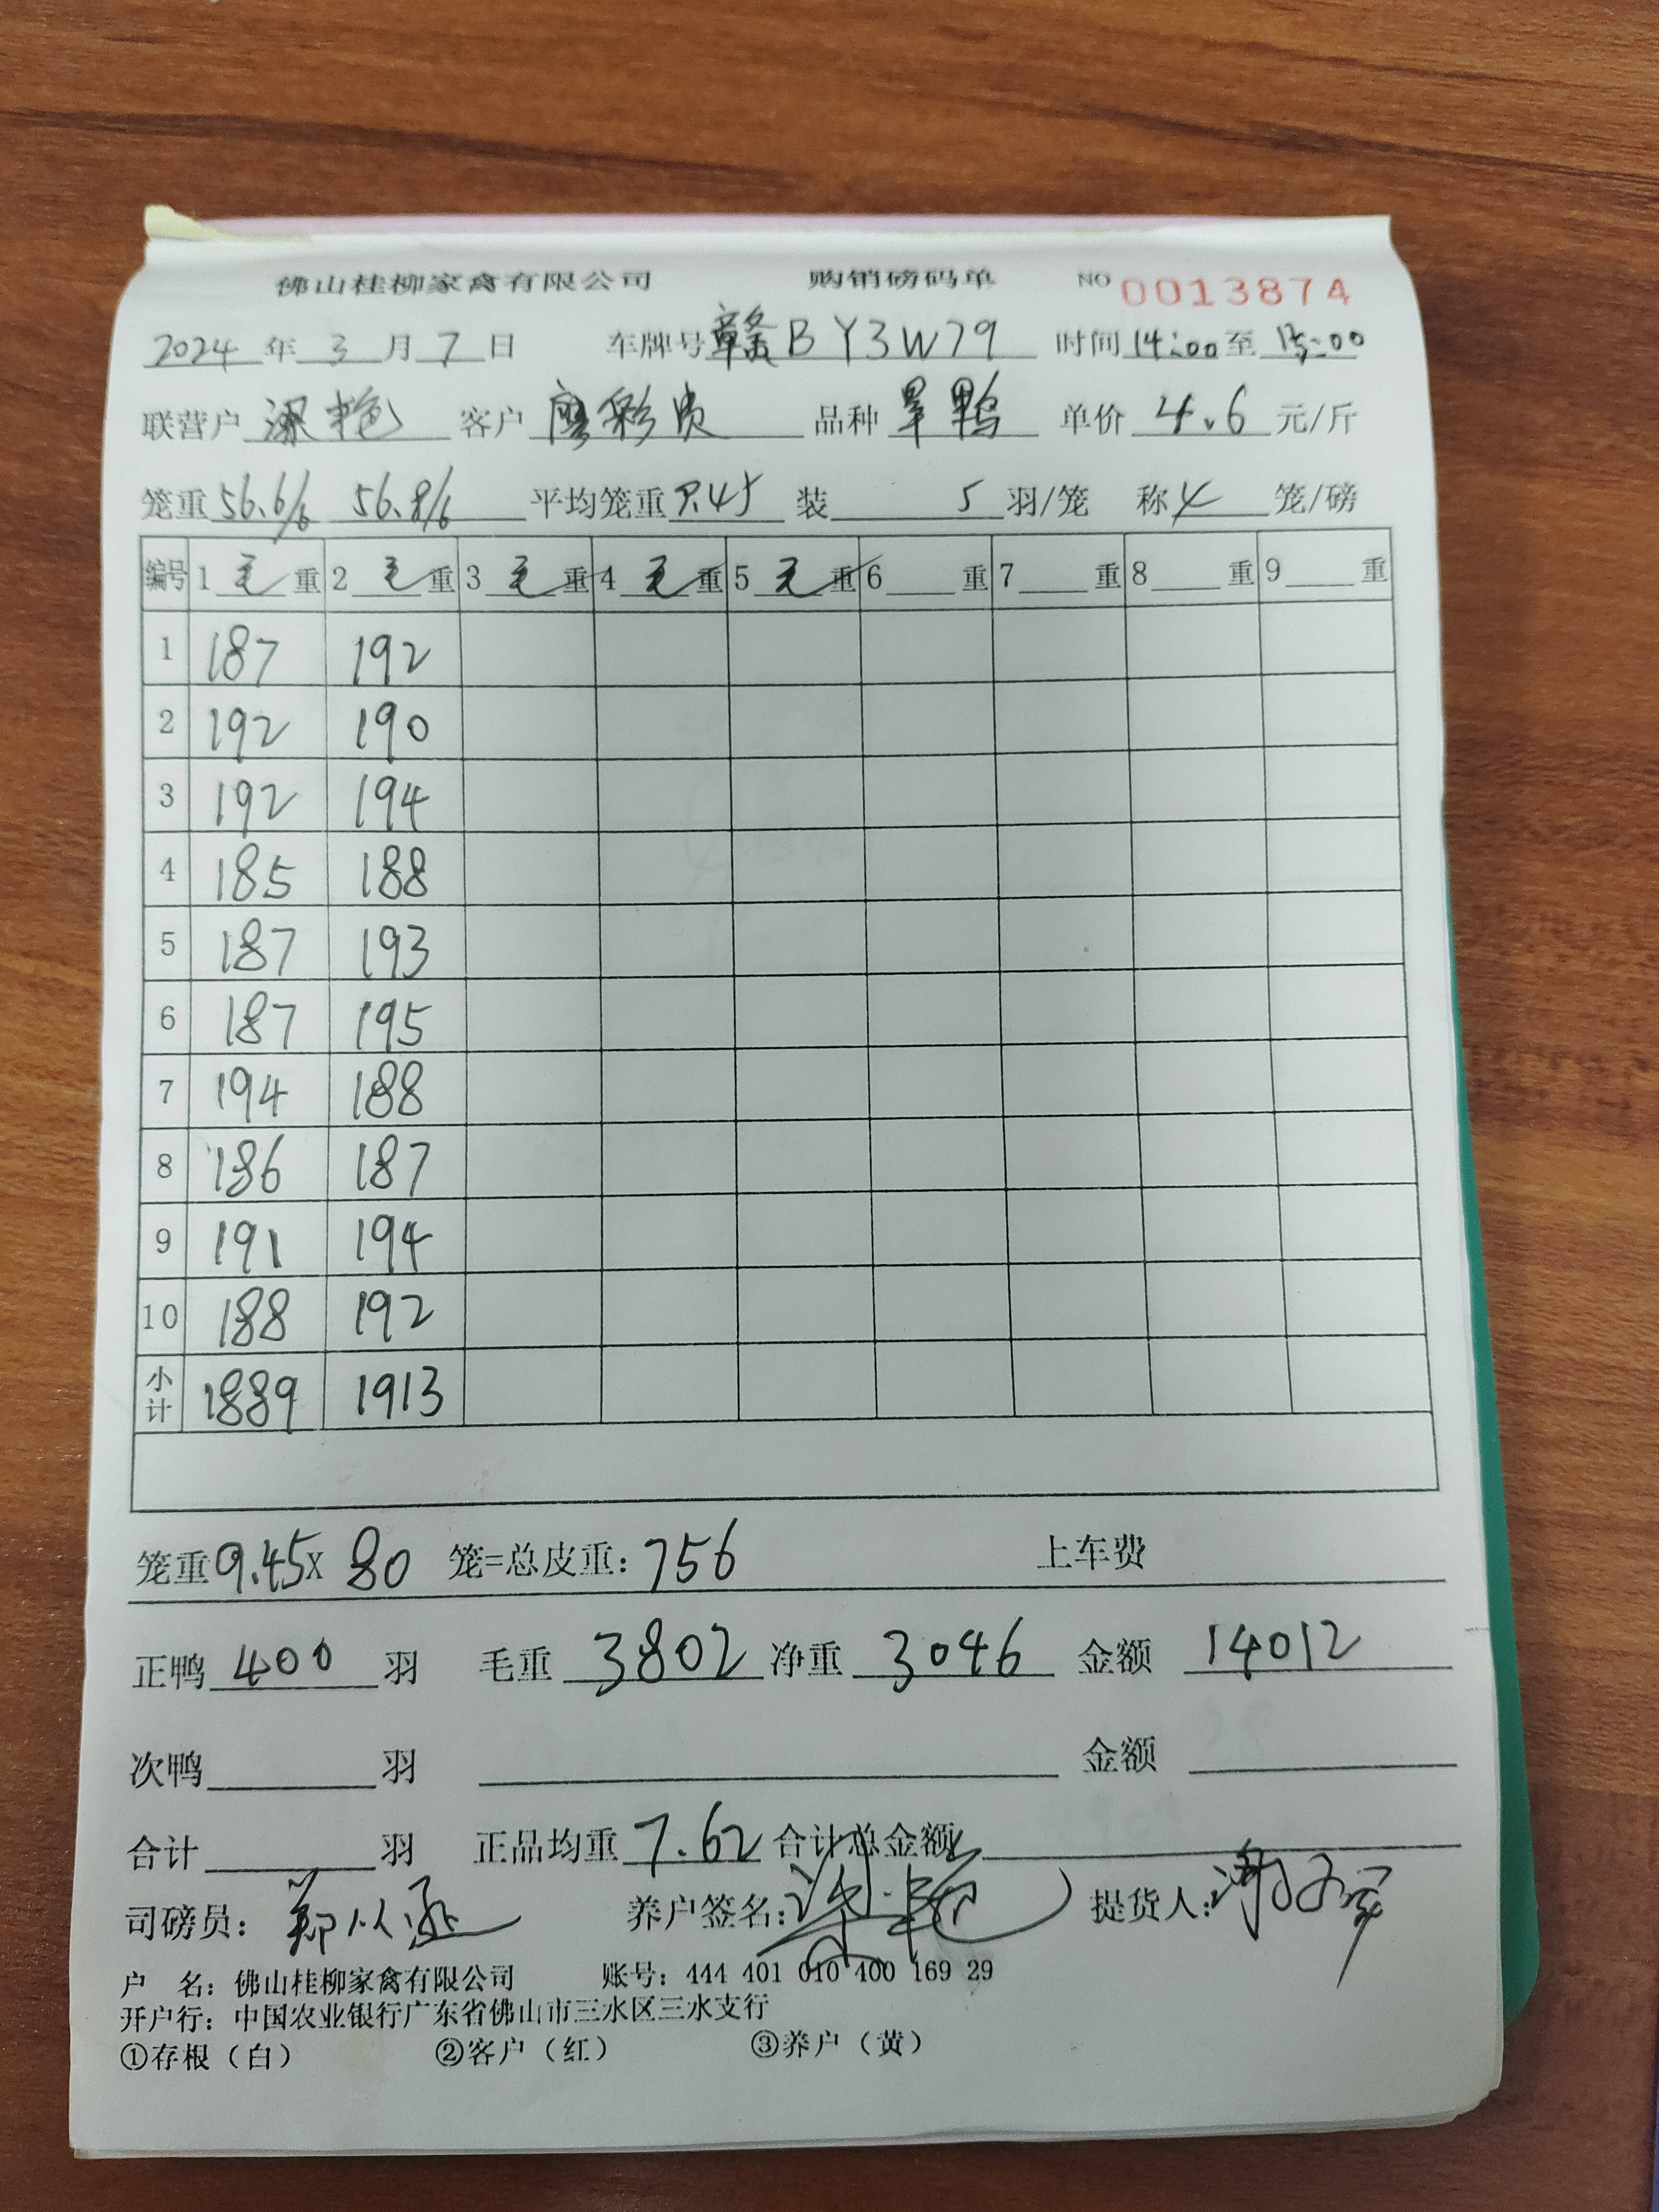 佛山桂柳家禽有限公司 购销磅码单 NO 0013874
2024 年 3 月 7 日 车牌号 赣BY3W79 时间 14:00 至 15:00
联营户 梁艳 客户 廖彩 品种 旱鸭 单价 4.6 元/斤
笼重 56.6/6 56.8/6 平均笼重 9.45 装 5 羽/笼 称 4 笼/磅
编号 1 毛 重 2 毛 重 3 毛 重 4 毛 重 5 毛 重 6 重 7 重 8 重 9 重
1 187 192
2 192 190
3 192 194
4 185 188
5 187 193
6 187 195
7 194 188
8 186 187
9 191 194
10 188 192
小计 1889 1913
笼重 9.45 X 80 笼=总皮重: 756 上车费
正鸭 400 羽 毛重 3802 净重 3046 金额 14012
次鸭 羽 金额
合计 羽 正品均重 7.62 合计总金额
司磅员: 郑从 养户签名: 梁艳 提货人:
户 名: 佛山桂柳家禽有限公司 账号: 444 401 010 400 169 29
开户行: 中国农业银行广东省佛山市三水区三水支行
①存根(白) ②客户(红) ③养户(黄)